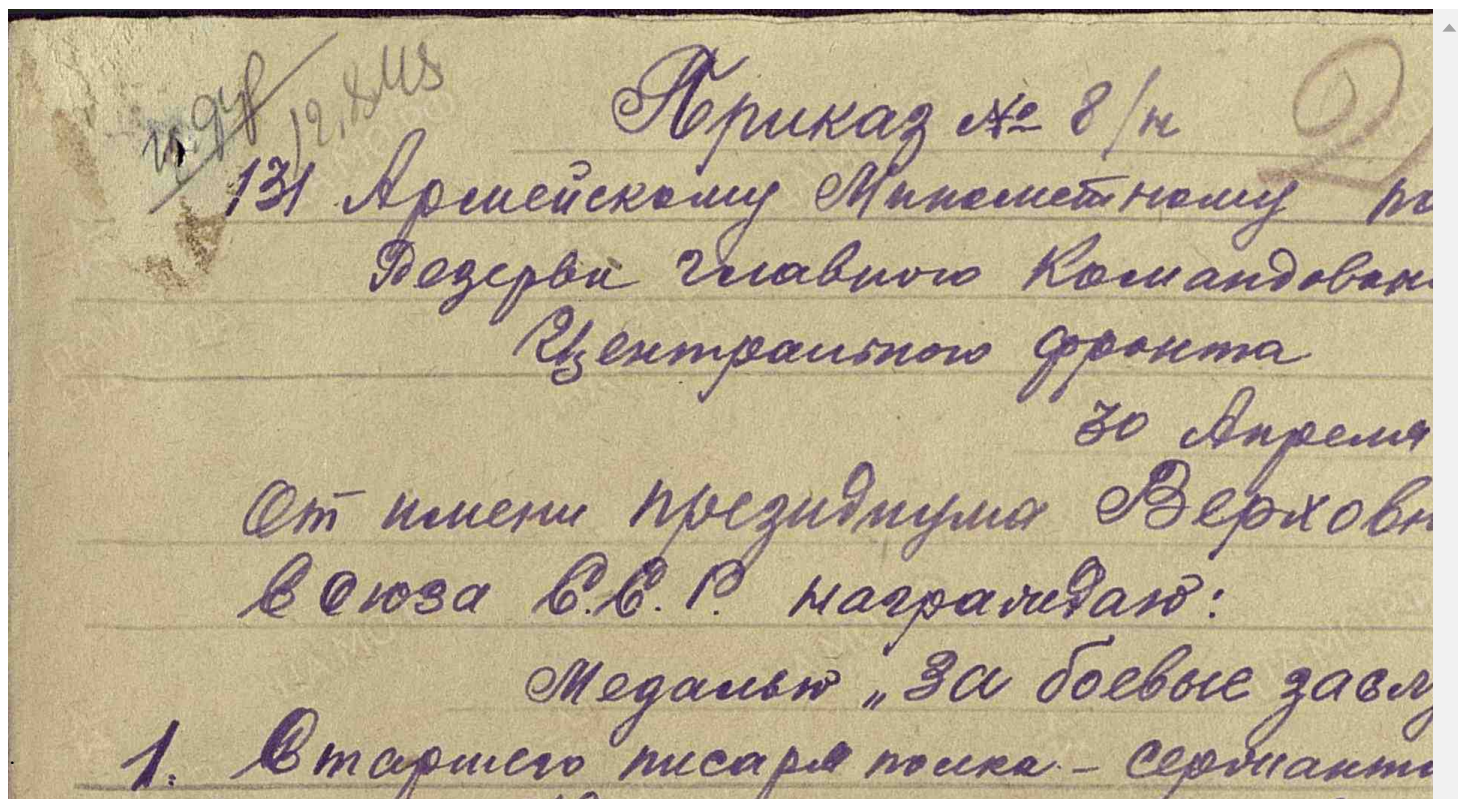 12.8.43
2
Приказ № 8/н
131 Армейскому Минометному по
Резерва главного Командован
Центрального фронта
30 Апреля
От имени президиума Верховн
Союза С.С.Р. награждаю:
Медалью „За боевые засл
1. Старшего писаря полка - сержанта